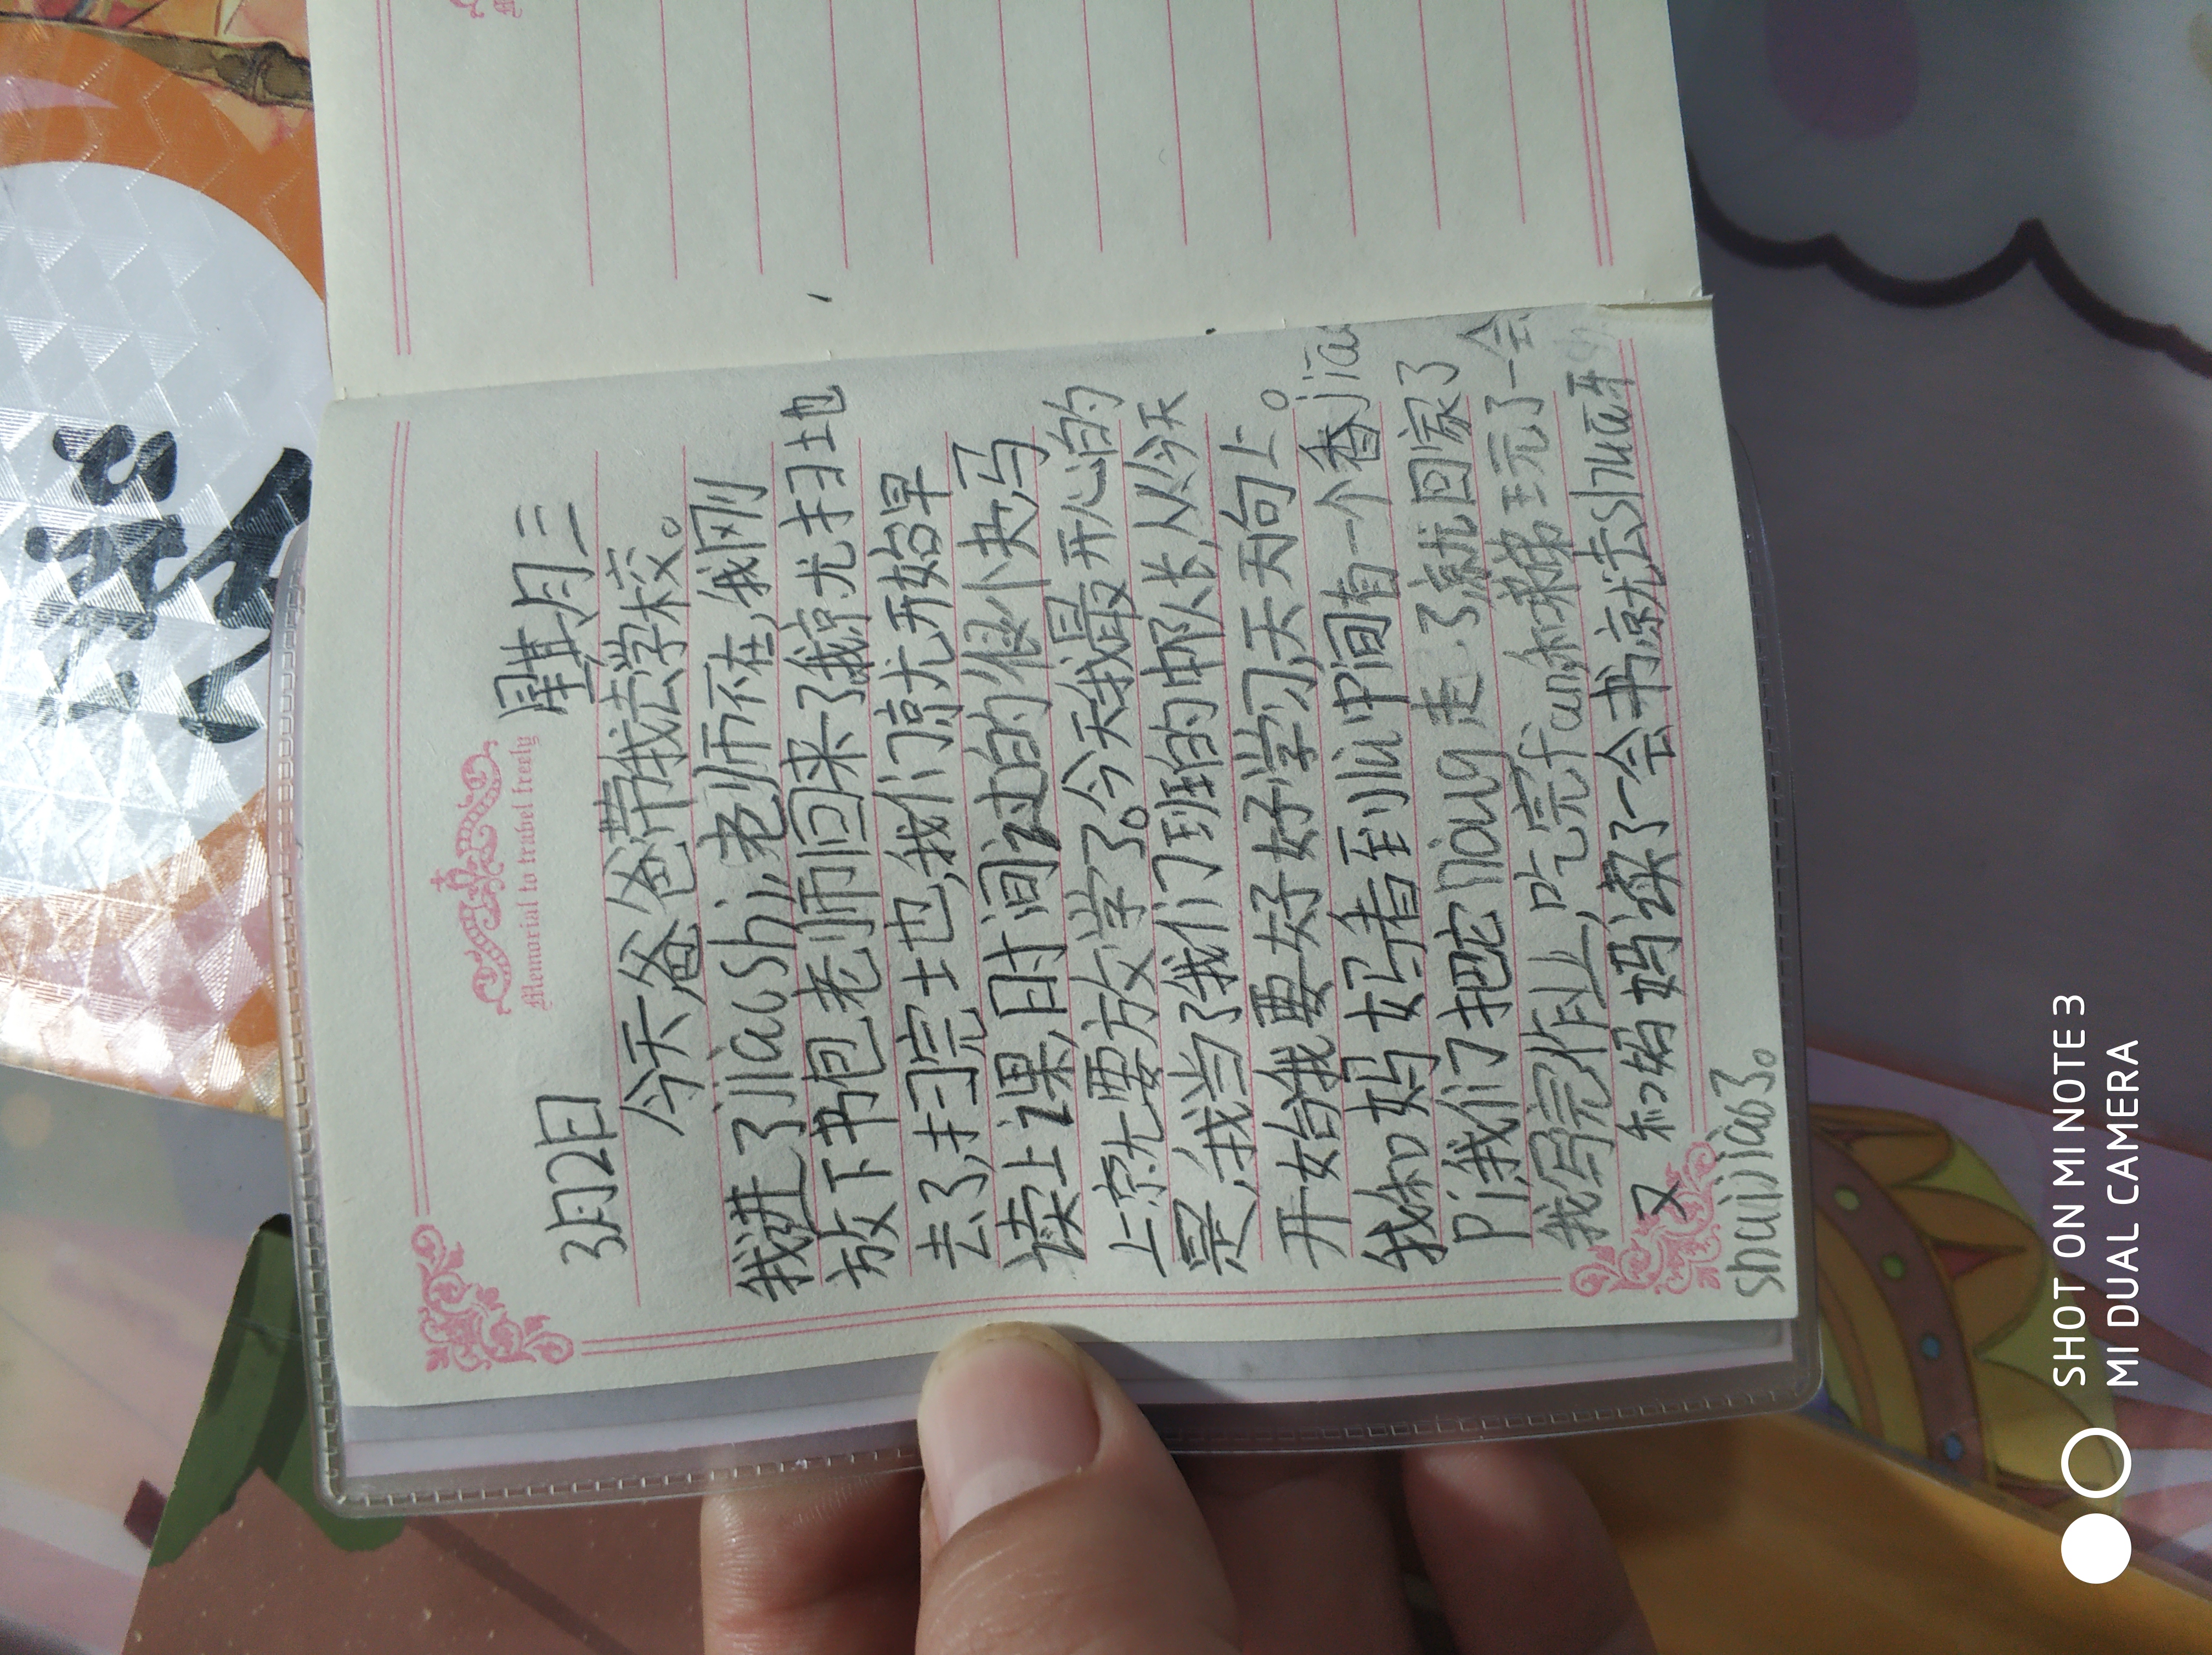 Memorial to trabel freely
3月2日 星其月三
今天爸爸带我去学校。
我进了jiaoshi,老师不在,我刚
放下书包老师回来了我就扫地
去了,扫完土也,我们就开始早
读上课,时间过的很快,马
上就要放学了。今天我最开心的
是,我当了我们班的中队长,从今天
开始我要好好学习,天天向上。
我和妈妈看到liu中间有一个香jiao
pi我们把它nong走了就回家了
我写完作业,吃完fan和弟弟玩了一会
又和妈妈读了一会书就去shua牙
shuijiao3。
SHOT ON MI NOTE 3
MI DUAL CAMERA